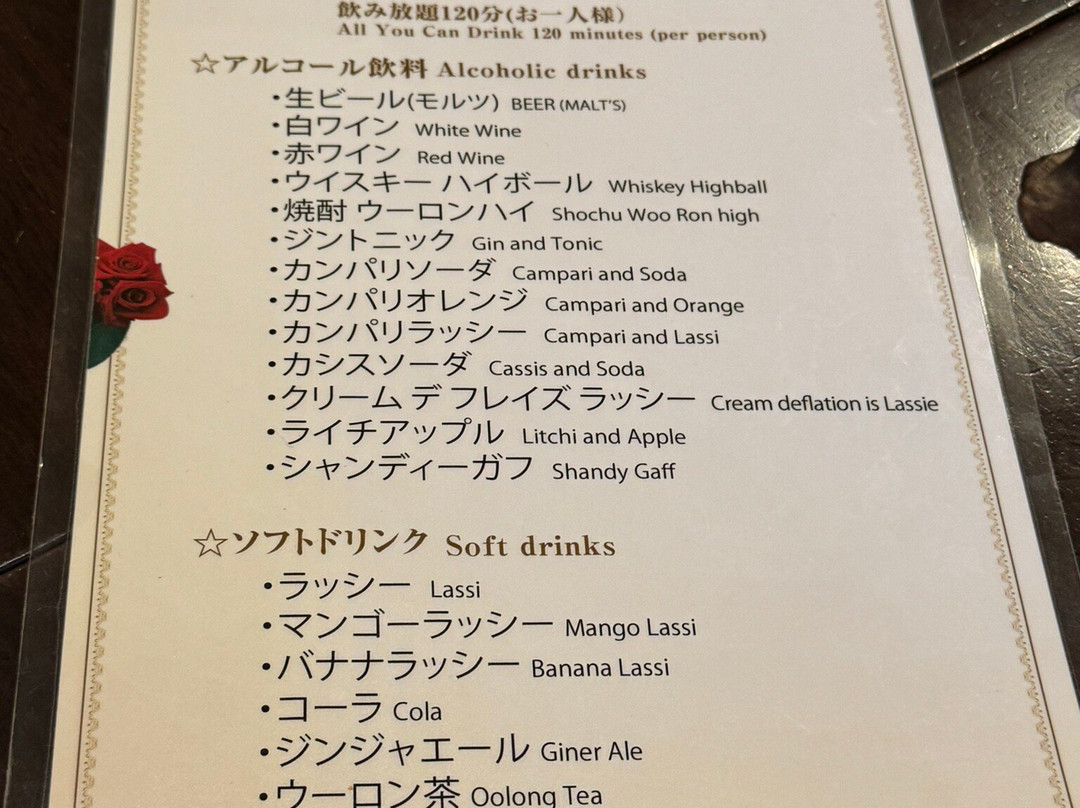 飲み放題120分(お一人様)
All You Can Drink 120 minutes (per person)
☆アルコール飲料 Alcoholic drinks
・生ビール(モルツ) BEER (MALT'S)
・白ワイン White Wine
・赤ワイン Red Wine
・ウイスキー ハイボール Whiskey Highball
・焼酎 ウーロンハイ Shochu Woo Ron high
・ジントニック Gin and Tonic
・カンパリソーダ Campari and Soda
・カンパリオレンジ Campari and Orange
・カンパリラッシー Campari and Lassi
・カシスソーダ Cassis and Soda
・クリーム デ フレイズ ラッシー Cream deflation is Lassie
・ライチアップル Litchi and Apple
・シャンディーガフ Shandy Gaff
☆ソフトドリンク Soft drinks
・ラッシー Lassi
・マンゴーラッシー Mango Lassi
・バナナラッシー Banana Lassi
・コーラ Cola
・ジンジャエール Giner Ale
・ウーロン茶 Oolong Tea